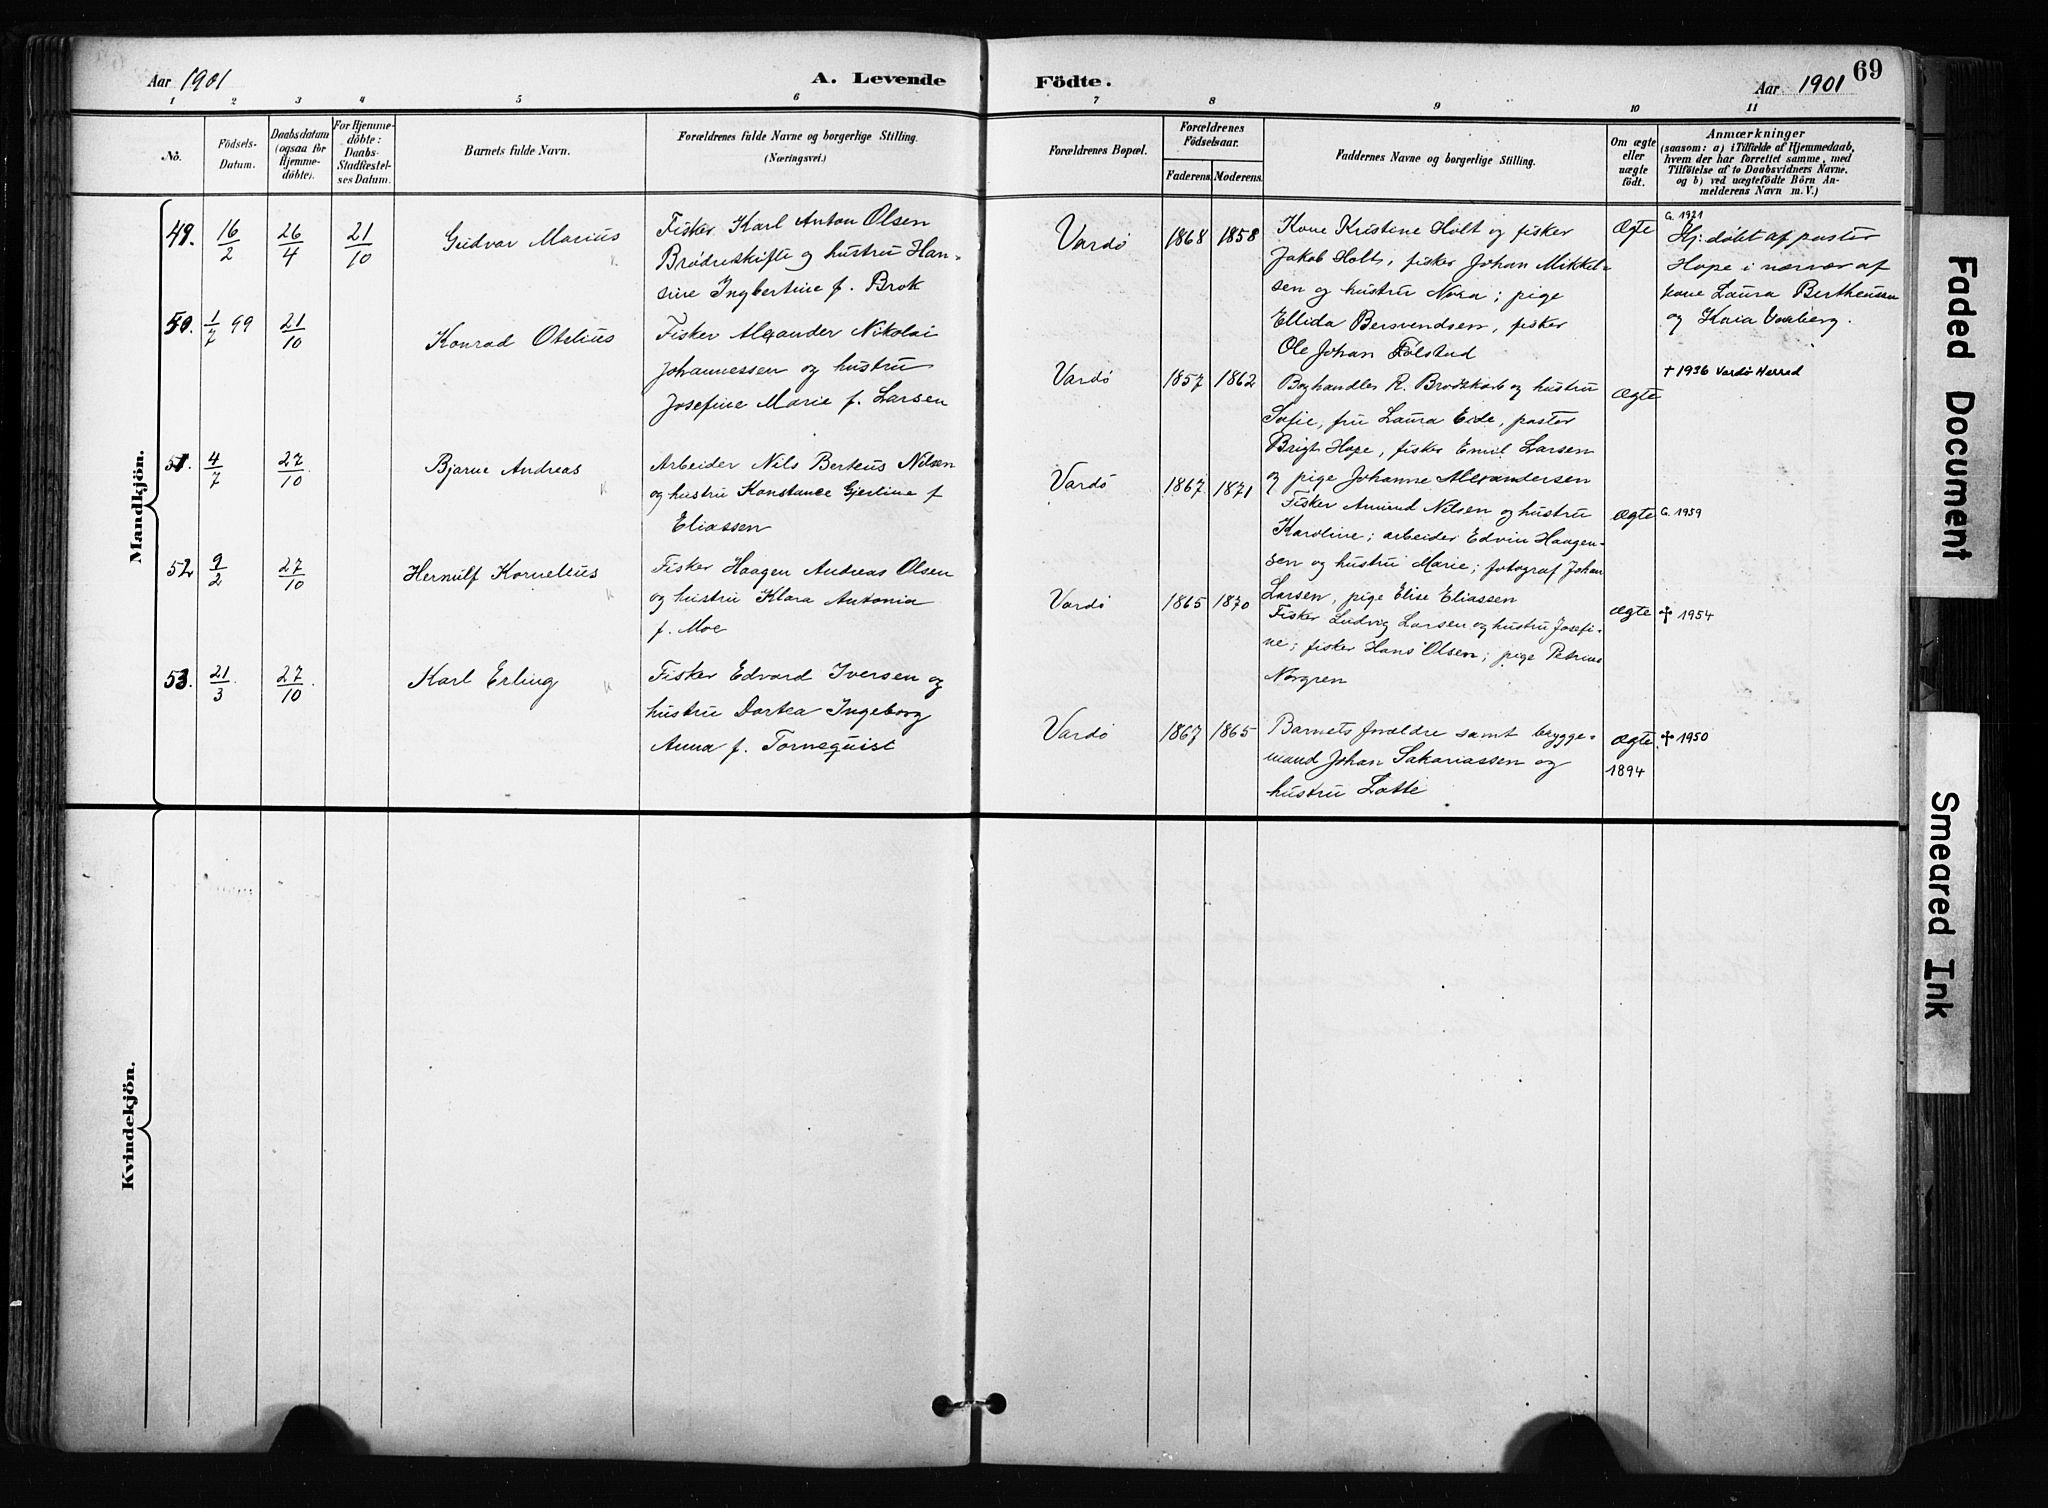 Aar 1901
A. Levende
Födte.
Aar 1901
69
1 2 3 4 5 6 7 8 9 10 11
Nö.
Födsels-
Datum.
Daabsdatum
(ogsaa for
Hjemme-
döbte).
For Hjemme-
döbte:
Daabs-
Stadfæstel-
ses Datum.
Barnets fulde Navn.
Forældrenes fulde Navne og borgerlige Stilling.
(Næringsvei.)
Forældrenes Bopæl.
Forældrenes
Födselsaar.
Faderens. Moderens.
Faddernes Navne og borgerlige Stilling.
Om ægte
eller
uægte
födt.
Anmærkninger
(saasom: a) i Tilfælde af Hjemmedaab,
hvem der har forrettet samme, med
Tilföielse af to Daabsvidners Navne.
og b) ved uægtefödte Börn An-
melderens Navn m. V.)
Mandkjön.
49. 16/2 26/4 21/10 Gudvar Marius
Fisker Karl Anton Olsen
Brødreskifte og hustru Han-
sine Ingbertine f. Brok
Vardö 1868 1858
Kone Kristine Holt og fisker
Jakob Holt, fisker Johan Mikkel-
sen og hustru Nora; pige
Ellida Bersvendsen, fisker
Ole Johan Følstad
Ægte
G. 1921
Hj. døbt af pastor
Hope i nærvær af
kone Laura Bertheusen
og Kaia Vaxberg.
50. 1/7 99 21/10 Konrad Otelius
Fisker Alexander Nikolai
Johannessen og hustru
Josefine Marie f. Larsen
Vardö 1857 1862
Boghandler R. Brodtkorb og hustru
Sofie, fru Laura Eide, pastor
Brigt Hope, fisker Emil Larsen
og pige Johanne Alexandersen
Ægte
† 1936 Vardø Herred
51. 4/7 27/10 Bjarne Andreas
Arbeider Nils Berteus Nilsen
og hustru Konstance Gjertine f
Eliassen
Vardö 1867 1871
Fisker Amund Nilsen og hustru
Karoline; arbeider Edvin Haagen-
sen og hustru Marie; fotograf Johan
Larsen, pige Elise Eliassen
Ægte G. 1959
52 9/2 27/10 Hernulf Kornelius
Fisker Haagen Andreas Olsen
og hustru Klara Antonia
f. Moe
Vardö 1865 1870
Fisker Ludvig Larsen og hustru Josefi-
ne; fisker Hans Olsen; pige Petrine
Norgren
Ægte † 1954
53. 21/3 27/10 Karl Erling
Fisker Edvard Iversen og
hustru Dortea Ingeborg
Anna f. Tornequist
Vardö 1867 1865
Barnets forældre samt brygge-
mand Johan Sakariassen og
hustru Lotte
Ægte † 1950
1894
Kvindekjön.
Faded Document
Smeared Ink